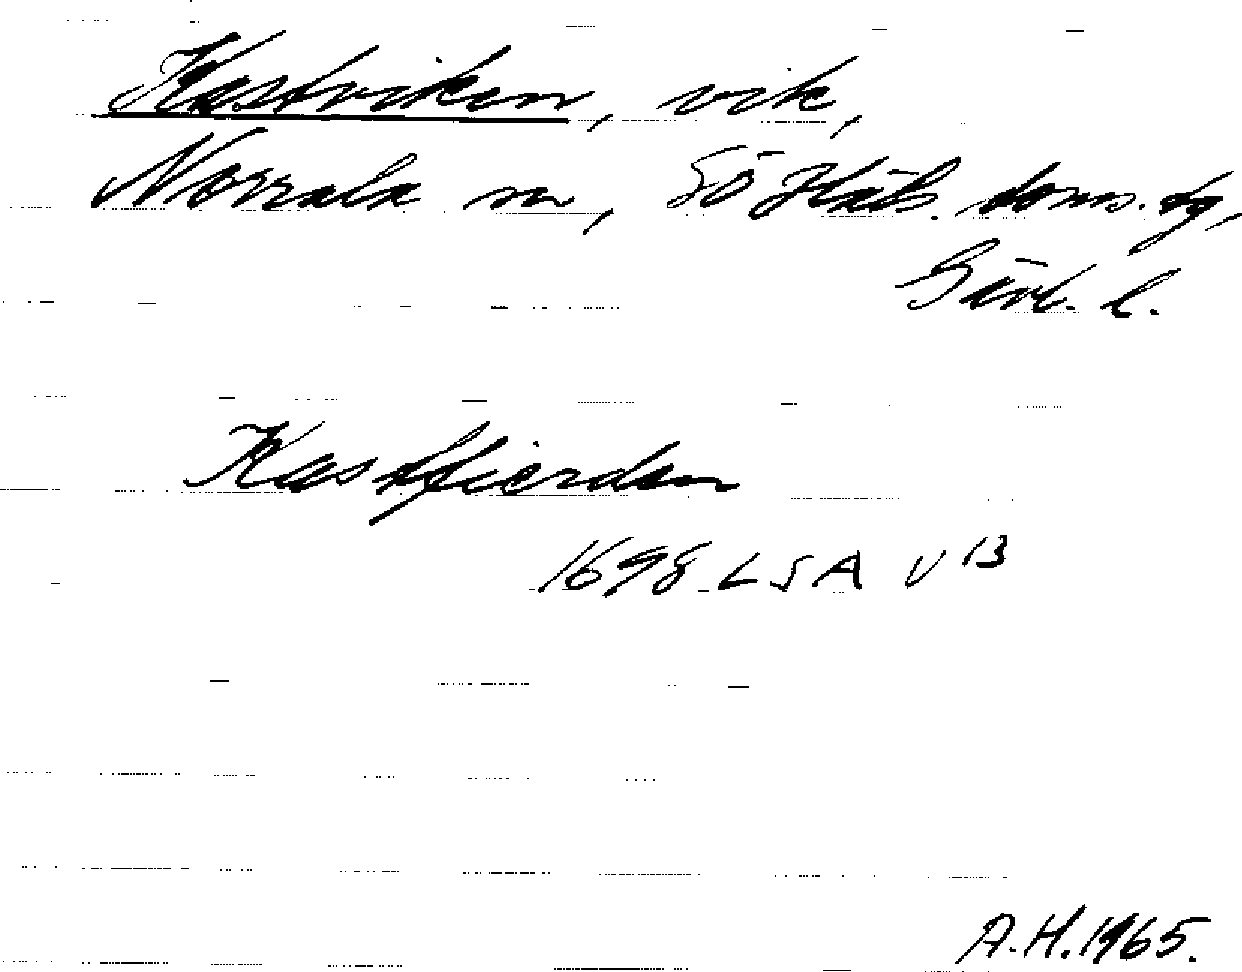 Kastviken, vik,
Norrala sn, Sö Häls. doms. dg,
Gävl. l.
Kastfierden
1698 LSA V 13
A.H. 1965.